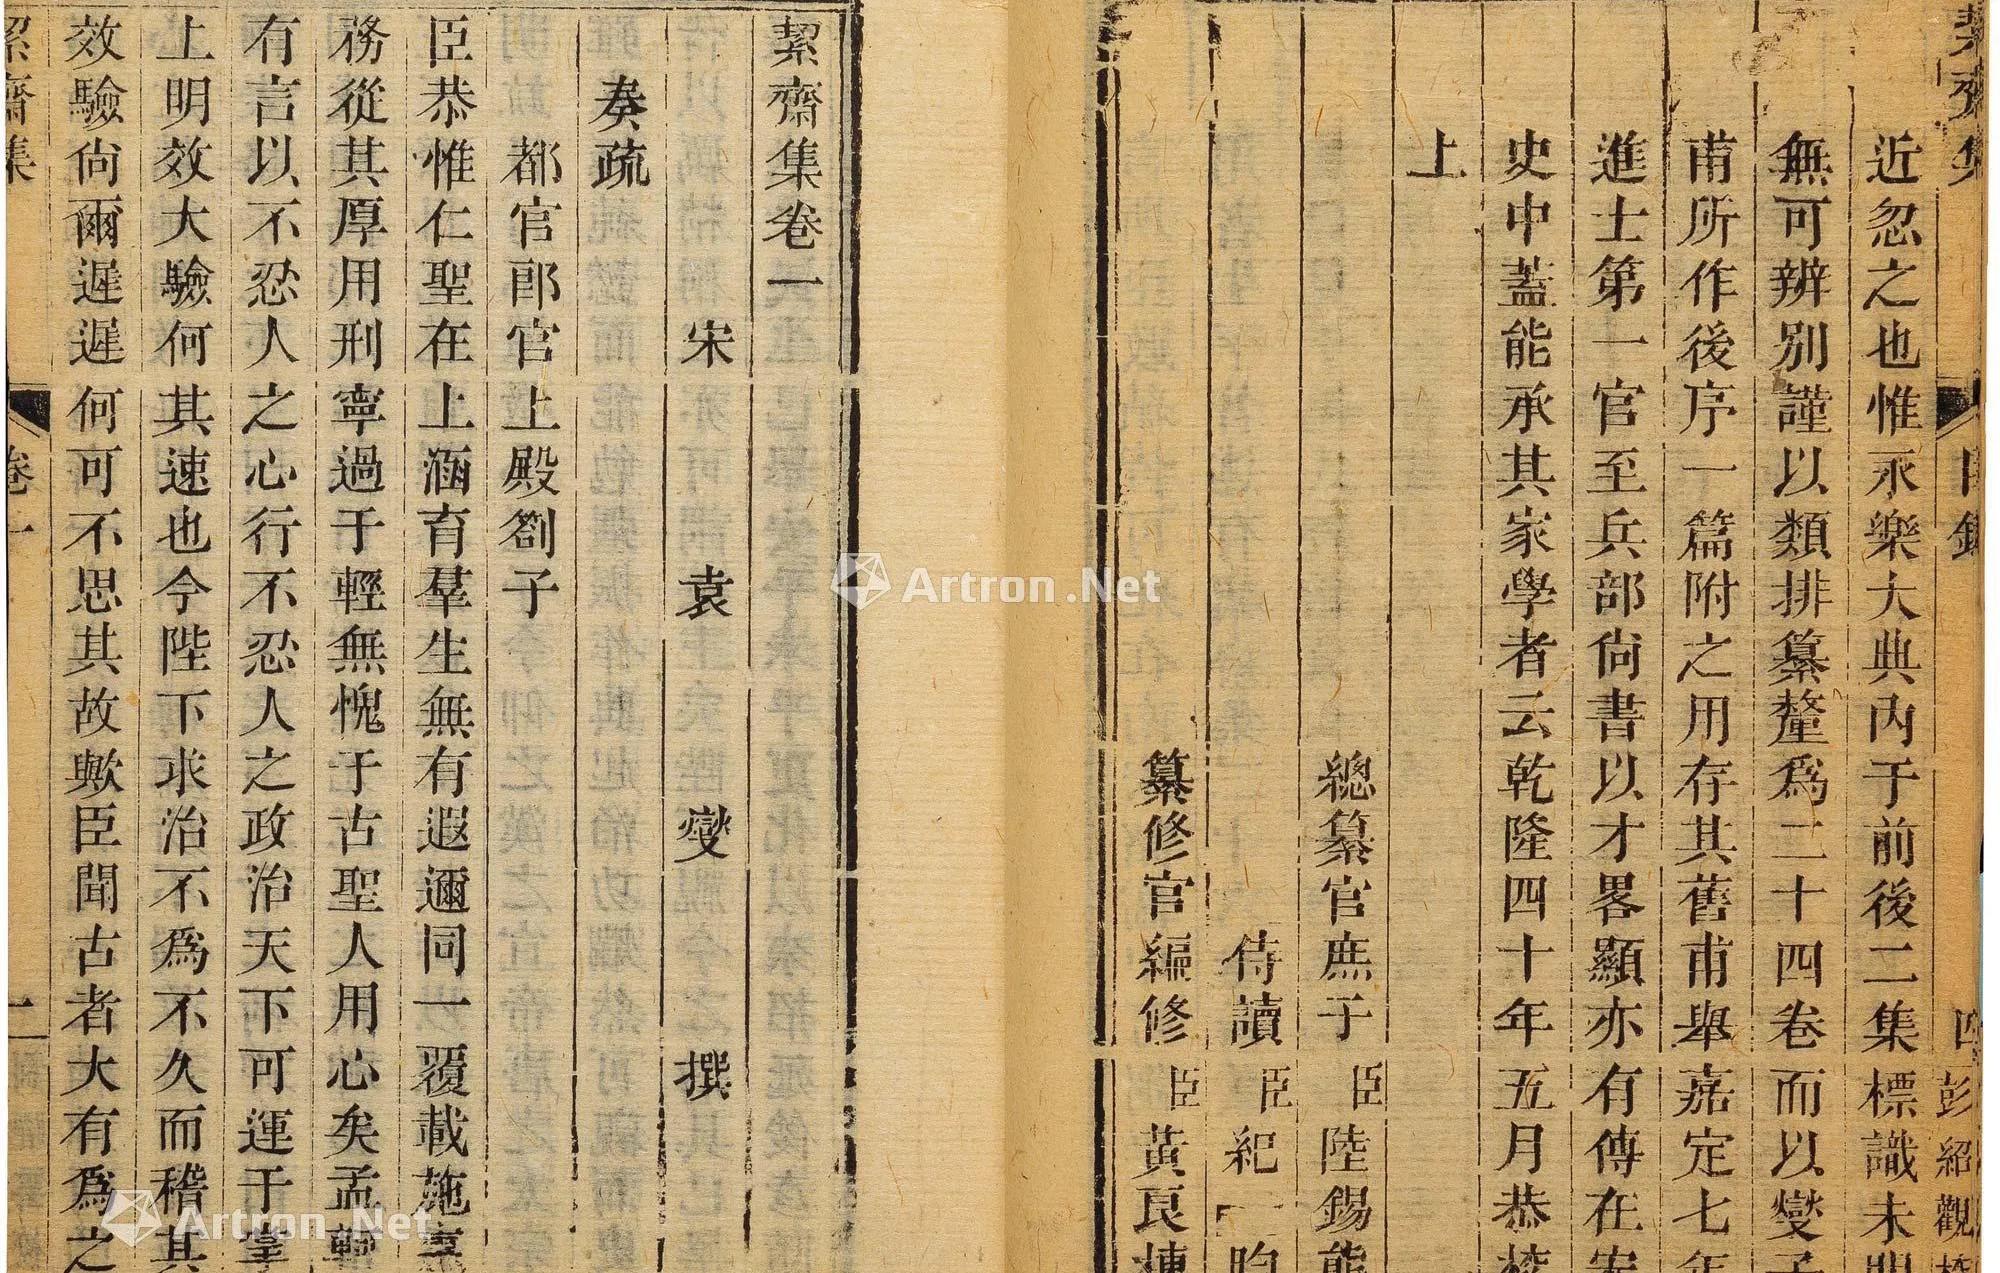 近忽之也惟永樂大典內于前後二集標識未
無可辨別謹以類排纂釐爲二十四卷而以燮子
甫所作後序一篇附之用存其舊甫舉嘉定七年
進士第一官至兵部尙書以才畧顯亦有傳在宋
史中蓋能承其家學者云乾隆四十年五月恭校
上
總纂官庶子臣陸錫熊
侍讀臣紀昀
纂修官編修臣黃良棟
彭紹觀
絜齋集卷一
宋袁燮撰
奏疏
都官郎官上殿劄子
臣恭惟仁聖在上涵育羣生無有遐邇同一覆載施
務從其厚用刑寧過于輕無愧于古聖人用心矣孟軻
有言以不忍人之心行不忍人之政治天下可運于掌
上明效大驗何其速也今陛下求治不爲不久而稽其
效驗尙爾遲遲何可不思其故歟臣聞古者大有爲之
絜齋集
卷一
一
Artron.Net
Artron.Net